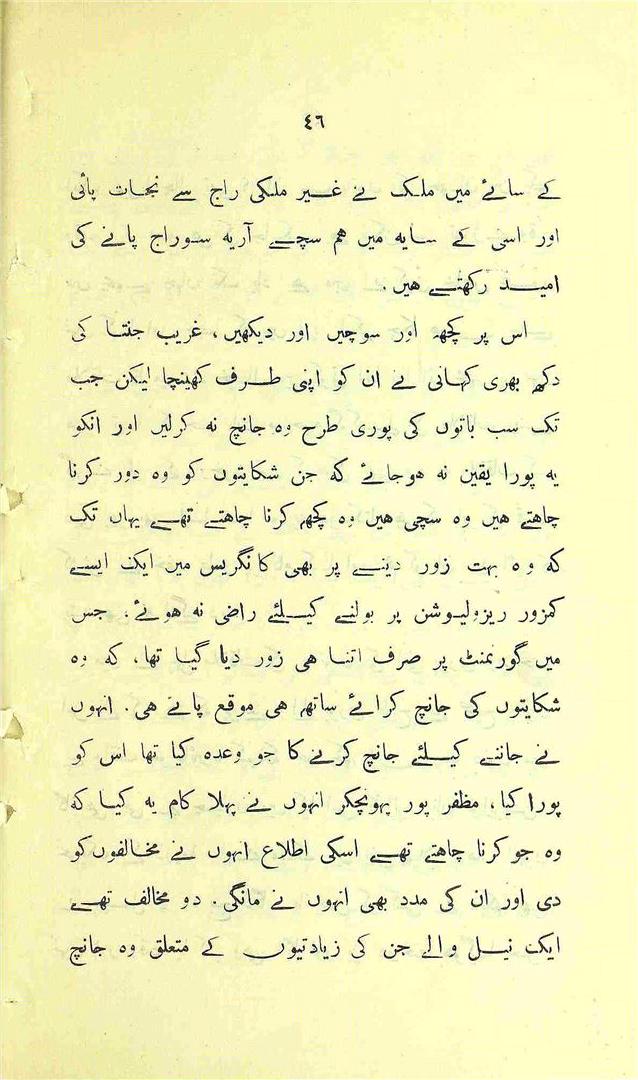 ٤٦
کے سائے میں ملک نے غیر ملکی راج سے نجات پائی
اور اسی کے سایہ میں ہم سچے آریہ سوراج پانے کی
امید رکھتے ہیں۔
اس پر کچھ اور سوچیں اور دیکھیں، غریب جنتا کی
دکھ بھری کہانی نے ان کو اپنی طرف کھینچا لیکن جب
تک سب باتوں کی پوری طرح وہ جانچ نہ کرلیں اور انکو
یہ پورا یقین نہ ہوجائے کہ جن شکایتوں کو وہ دور کرنا
چاہتے ہیں وہ سچی ہیں وہ کچھ کرنا چاہتے تھے یہاں تک
کہ وہ بہت زور دینے پر بھی کانگریس میں ایک ایسے
کمزور ریزولیوشن پر بولنے کیلئے راضی نہ ہوئے، جس
میں گورنمنٹ پر صرف اتنا ہی زور دیا گیا تھا، کہ وہ
شکایتوں کی جانچ کرائے ساتھ ہی موقع پاتے ہی۔ انہوں
نے جاننے کیلئے جانچ کرنے کا جو وعدہ کیا تھا اس کو
پورا کیا، مظفر پور پہونچکر انہوں نے پہلا کام یہ کیا کہ
وہ جو کرنا چاہتے تھے اسکی اطلاع انہوں نے مخالفوں کو
دی اور ان کی مدد بھی انہوں نے مانگی۔ دو مخالف تھے
ایک نیل والے جن کی زیادتیوں کے متعلق وہ جانچ